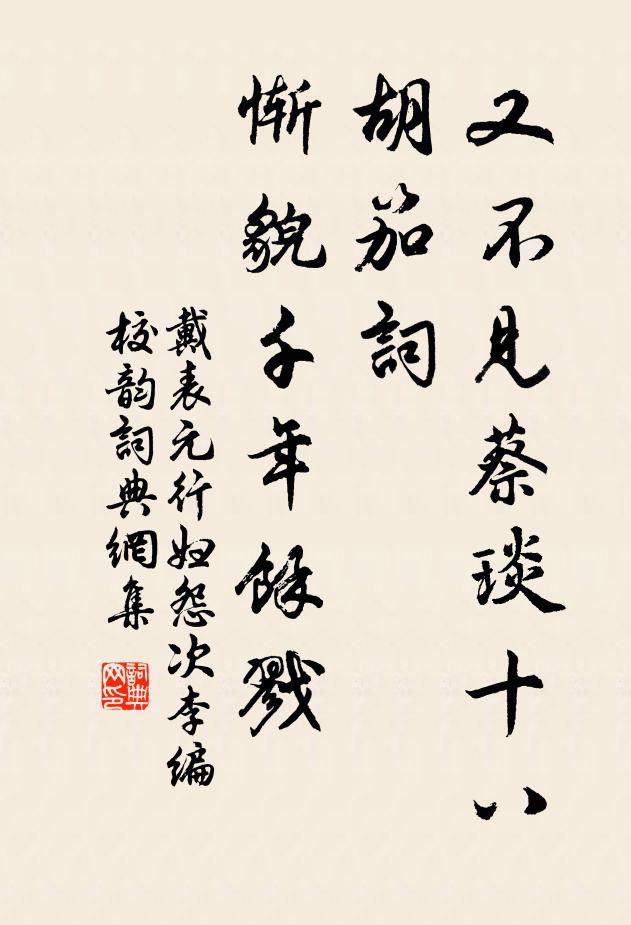 又不见蔡琰十八
胡笳詞
慚貌千年餘戮
戴表元行妇怨次李编
校韵詞典網集
詞典网印